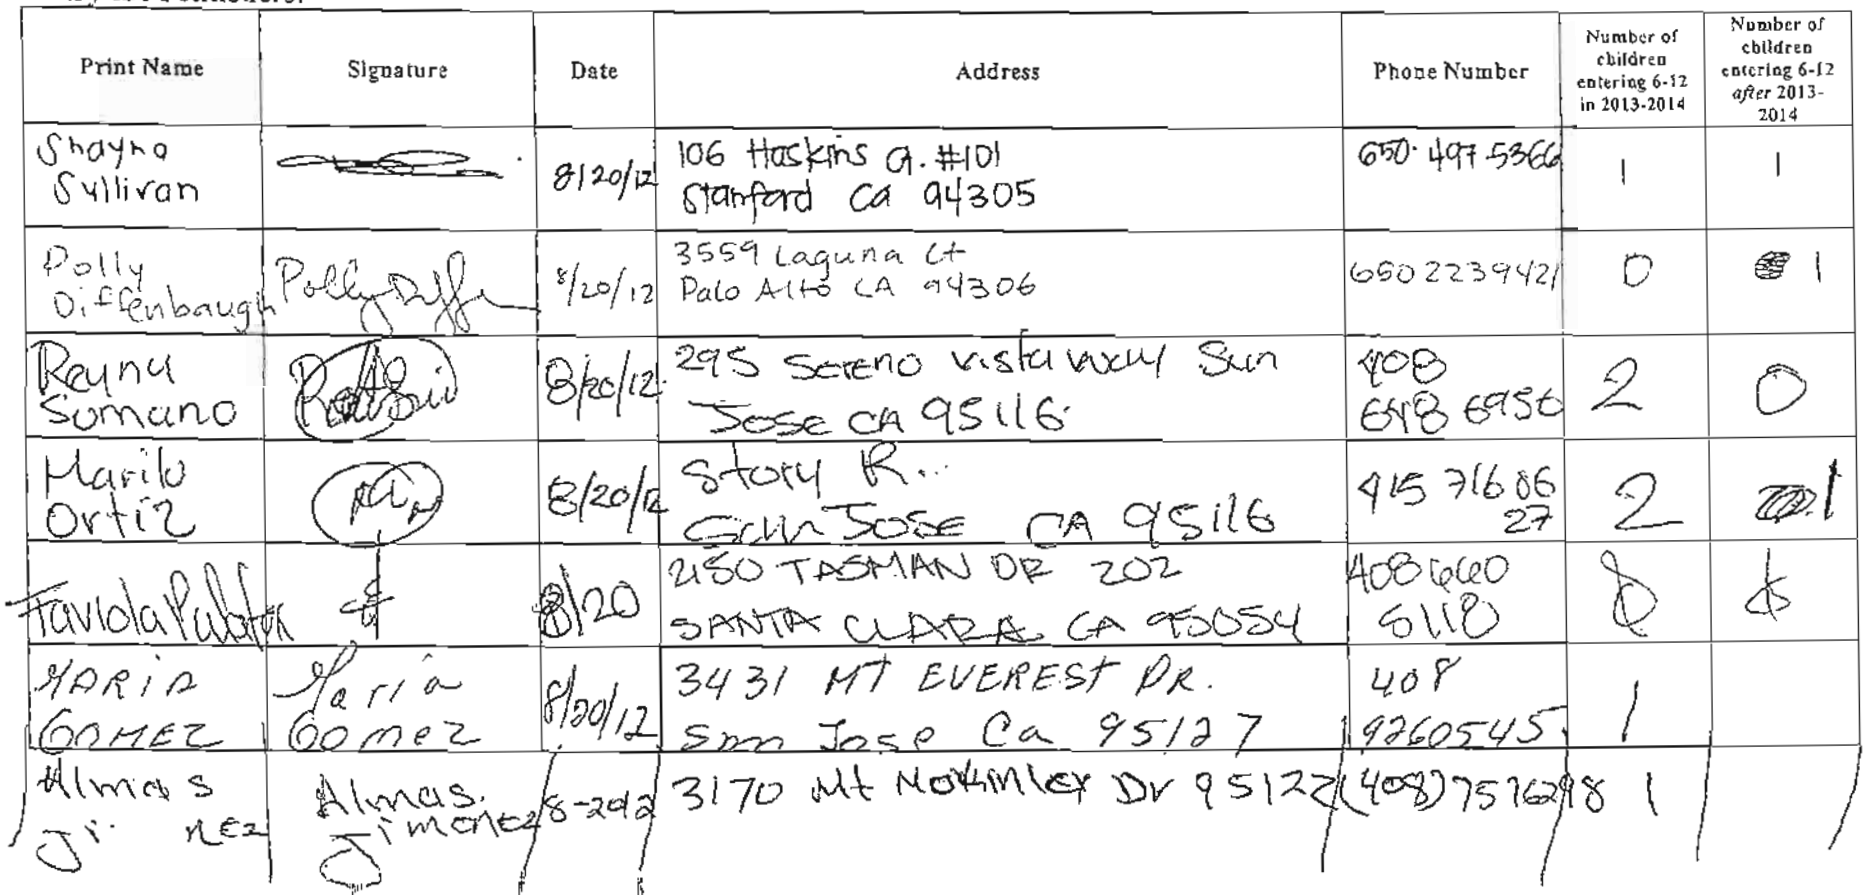 Print Name
Signature
Date
Address
Phone Number
Number of
children
entering 6-12
in 2013-2014
Number of
children
entering 6-12
after 2013-
2014
Shayna
Sullivan
8/20/12
106 Hoskins Ct. #101
Stanford Ca 94305
650. 497-5366
1
1
Polly
Diffenbaugh
Polly Diff
8/20/12
3559 Laguna Ct
Palo Alto CA 94306
650 2239421
0
1
Reyna
Sumano
8/20/12
295 Sereno Vista Way San
Jose CA 95116
408
648 6956
2
0
Marilu
Ortiz
8/20/12
Story R...
San Jose CA 95116
415 716 06
27
2
1
Faviola
8/20
2180 TASMAN DR 202
SANTA CLARA CA 95054
408 660
5118
MARIA
GOMEZ
Maria
Gomez
8/20/12
3431 MT EVEREST DR.
San Jose Ca 95127
408
9260545
1
Almas
Ji nez
Almas.
Jimenez
8-2012
3170 Mt Dr 95127
(408) 7576298
1